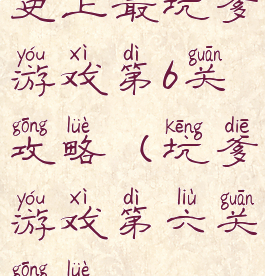 史上最坑爹
yóu xì dì guān
游戏第6关
gōng lüè kēng diē
攻略（坑爹
yóu xì dì liù guān
游戏第六关
gōng lüè